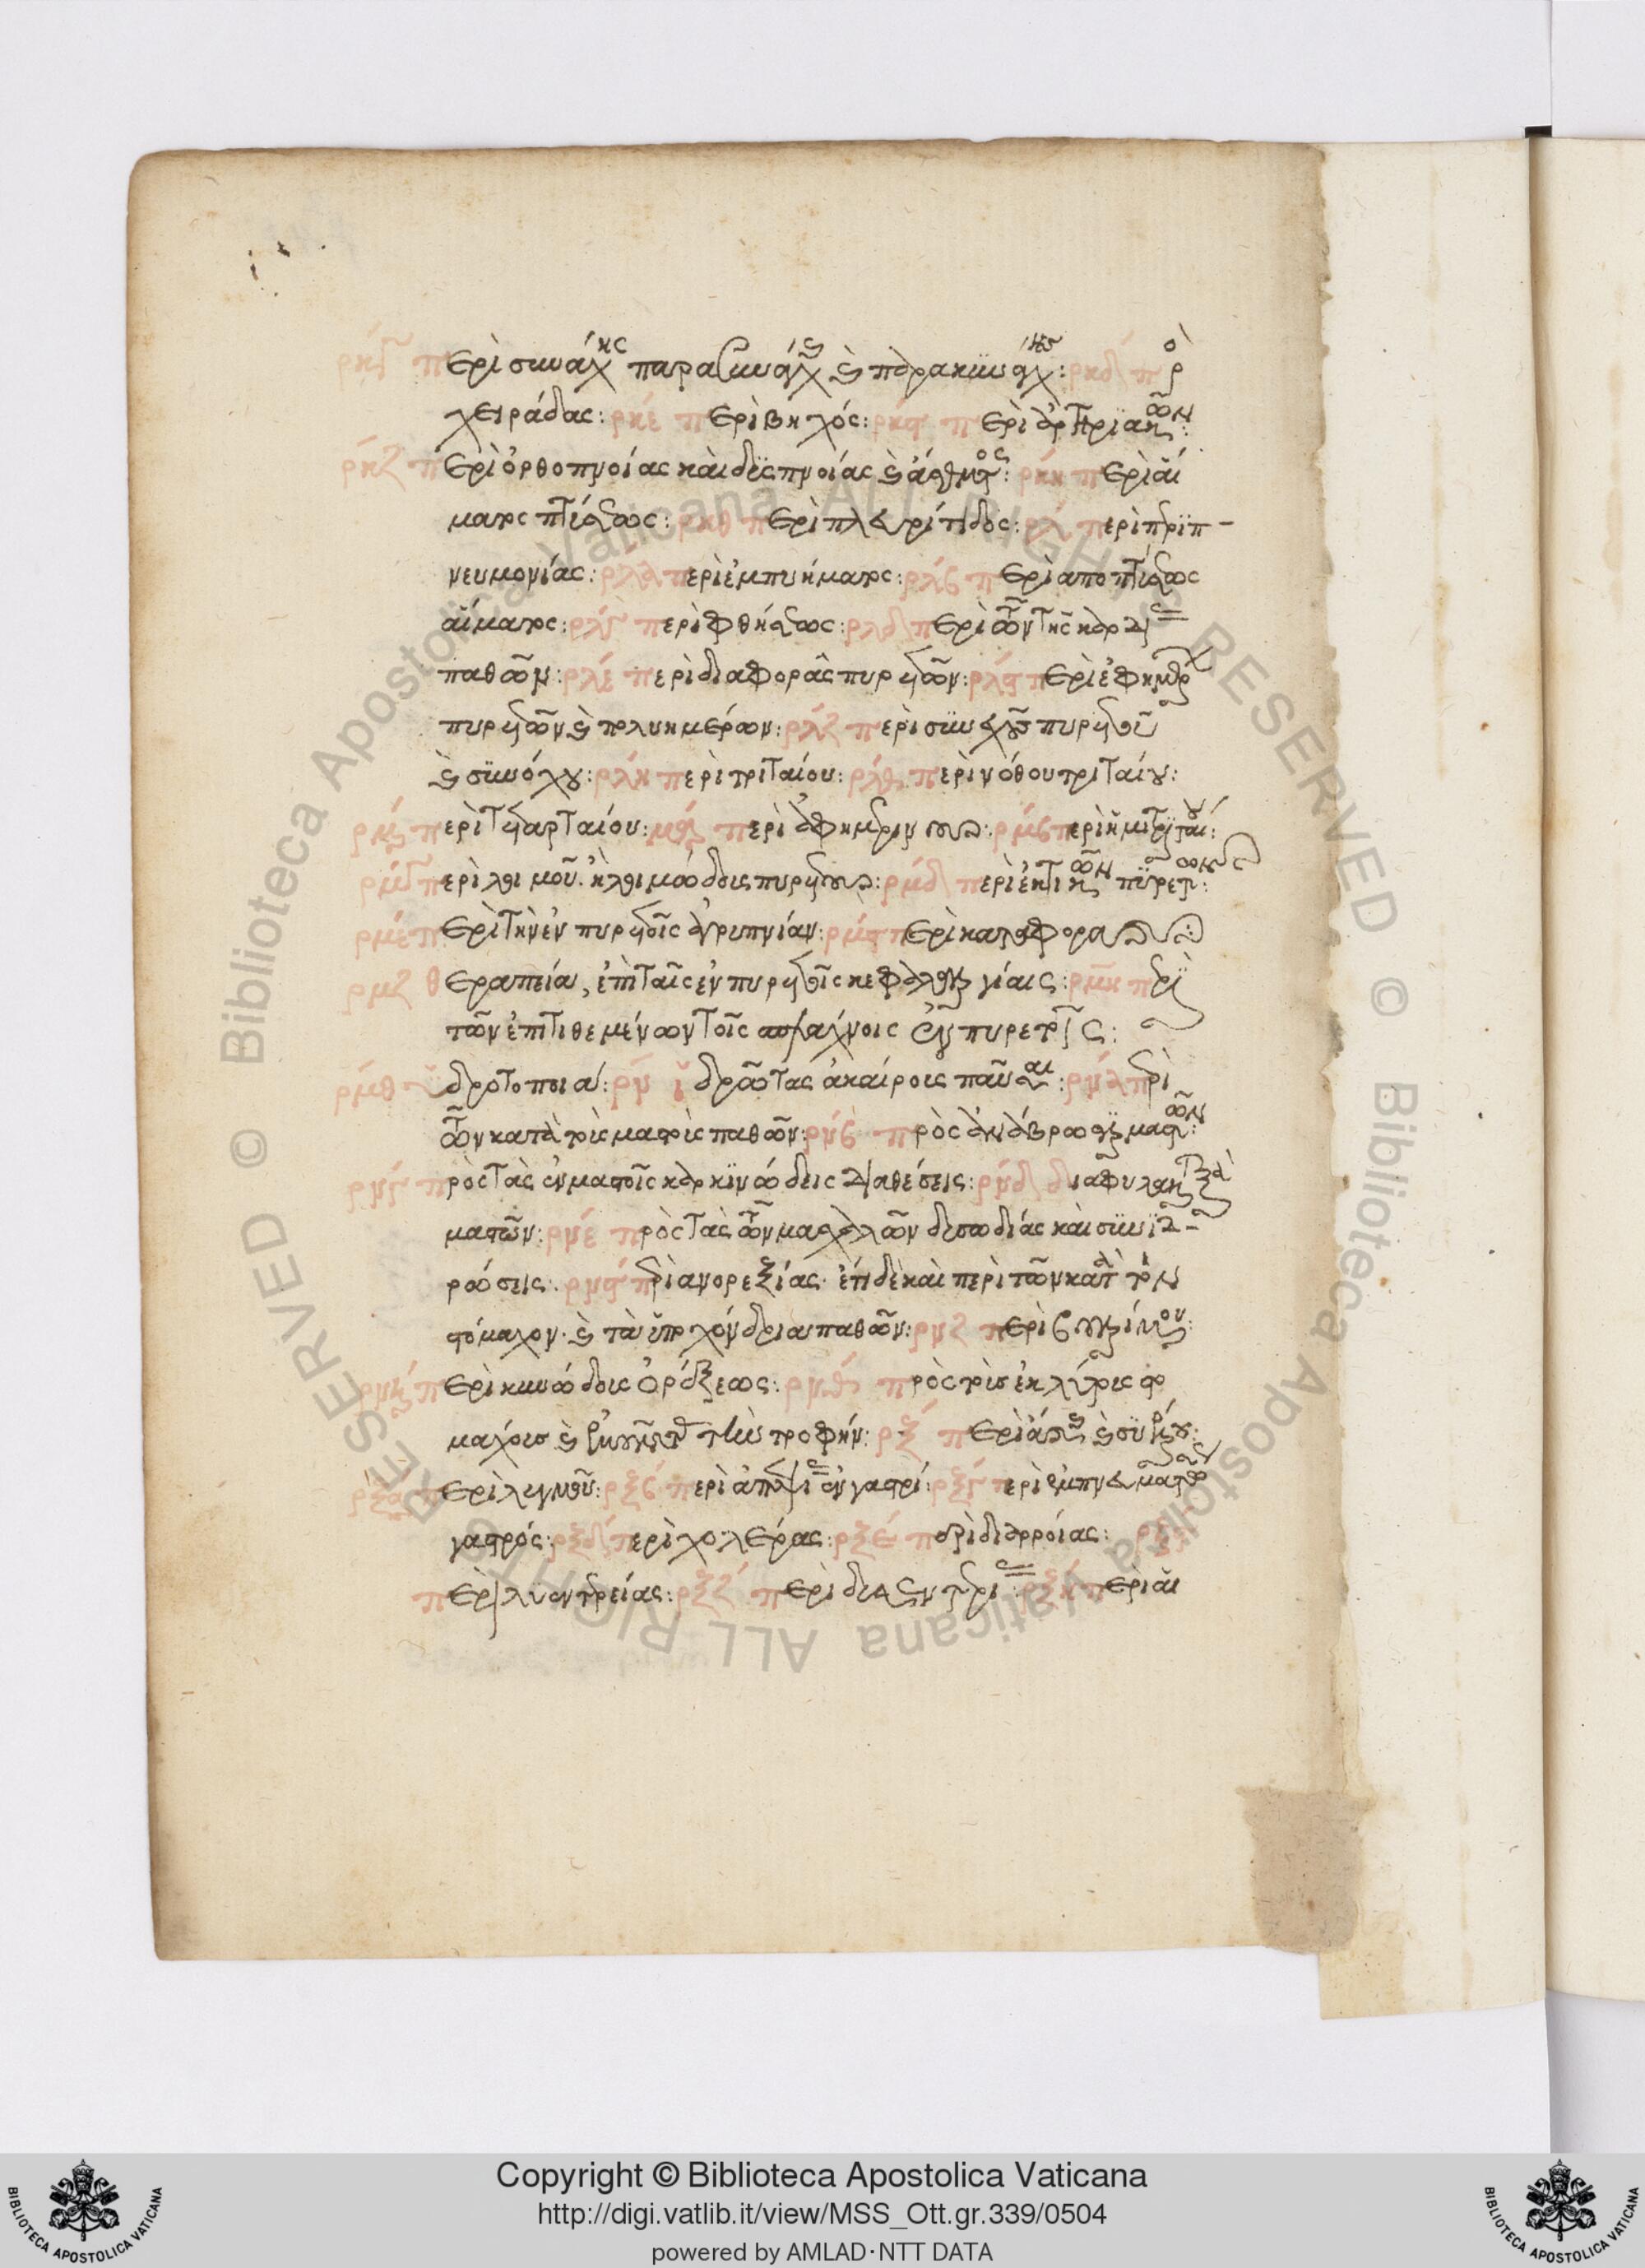 ρκγ περὶ συνάγχης παρασυνάγχης καὶ παρακυνάγχης: ρκδ πρὸ
χειράδας: ρκε περὶ βηχός: ρκϛ περὶ ἀρτηριακῶν:
ρκζ περὶ ὀρθοπνοίας καὶ δυσπνοίας καὶ ἄσθματος: ρκη περὶ αἵ
ματος πτύσεως: ρκθ περὶ πλευρίτιδος: ρλ περὶ περιπ-
νευμονίας: ρλα περὶ ἐμπυήματος: ρλβ περὶ αποπτύσεως
αἵματος: ρλγ περὶ φθήσεως: ρλδ περὶ τῶν τῆς καρδίας
παθῶν: ρλε περὶ διαφορᾶς πυρετῶν: ρλϛ περὶ ἐφημέρων
πυρετῶν καὶ πολυημέρων: ρλζ περὶ συνεχοῦς πυρετοῦ
καὶ συνόχου: ρλη περὶ τριταίου: ρλθ περὶ νόθου τριταίου:
ρμ περὶ τεταρταίου: ρμα περὶ ἀφημερινοῦ: ρμβ περὶ ἡμιτριταίου:
ρμγ περὶ λοιμοῦ. ἢ λοιμώδους πυρετοῦ: ρμδ περὶ ἑκτικῶν πυρετῶν:
ρμε περὶ τὴν ἐν πυρετοῖς ἀγρυπνίαν: ρμϛ περὶ καταφορᾶς
ρμζ θεραπεία, ἐπὶ ταῖς ἐν πυρετοῖς κεφαλαλγίαις: ρμη περὶ
τῶν ἐπιτιθεμένων τοῖς σπλάχνοις ἐν πυρετοῖς:
ρμθ ἱδροτοποιά: ρν ἱδρῶτας ἀκαίρους παῦσαι: ρνα περὶ
τῶν κατὰ τοὺς μαστοὺς παθῶν: ρνβ πρὸς ἀναβρώσεις μαστῶν:
ρνγ πρὸς τὰς ἐν μαστοῖς καρκινώδεις διαθέσεις: ρνδ διαφυλακτικὰ
μαστῶν: ρνε πρὸς τὰς τῶν μασχαλῶν δυσωδίας καὶ συνιδ-
ρώσεις: ρνϛ περὶ ανορεξίας. ἔτι δὲ καὶ περὶ τῶν κατὰ τὸν
στόμαχον. καὶ τὰ ὑποχόνδρια παθῶν: ρνζ περὶ βουλίμου:
ρνη περὶ κυνώδους ὀρέξεως: ρνθ πρὸς τοὺς ἐκλύτους στο
μάχους καὶ ἐμοῦντας τὴν τροφήν: ρξ περὶ
ρξα περὶ λυγμοῦ: ρξβ περὶ ἀπεψίας ἐν γαστρί: ρξγ περὶ ἐμπνευματώσεως
γαστρός: ρξδ περὶ χολέρας: ρξε περὶ διαρροίας: ρξϛ
περὶ λυεντερείας: ρξζ περὶ δυσεντερίας: ρξη περὶ αἱ
Copyright © Biblioteca Apostolica Vaticana
http://digi.vatlib.it/view/MSS_Ott.gr.339/0504
powered by AMLAD·NTT DATA